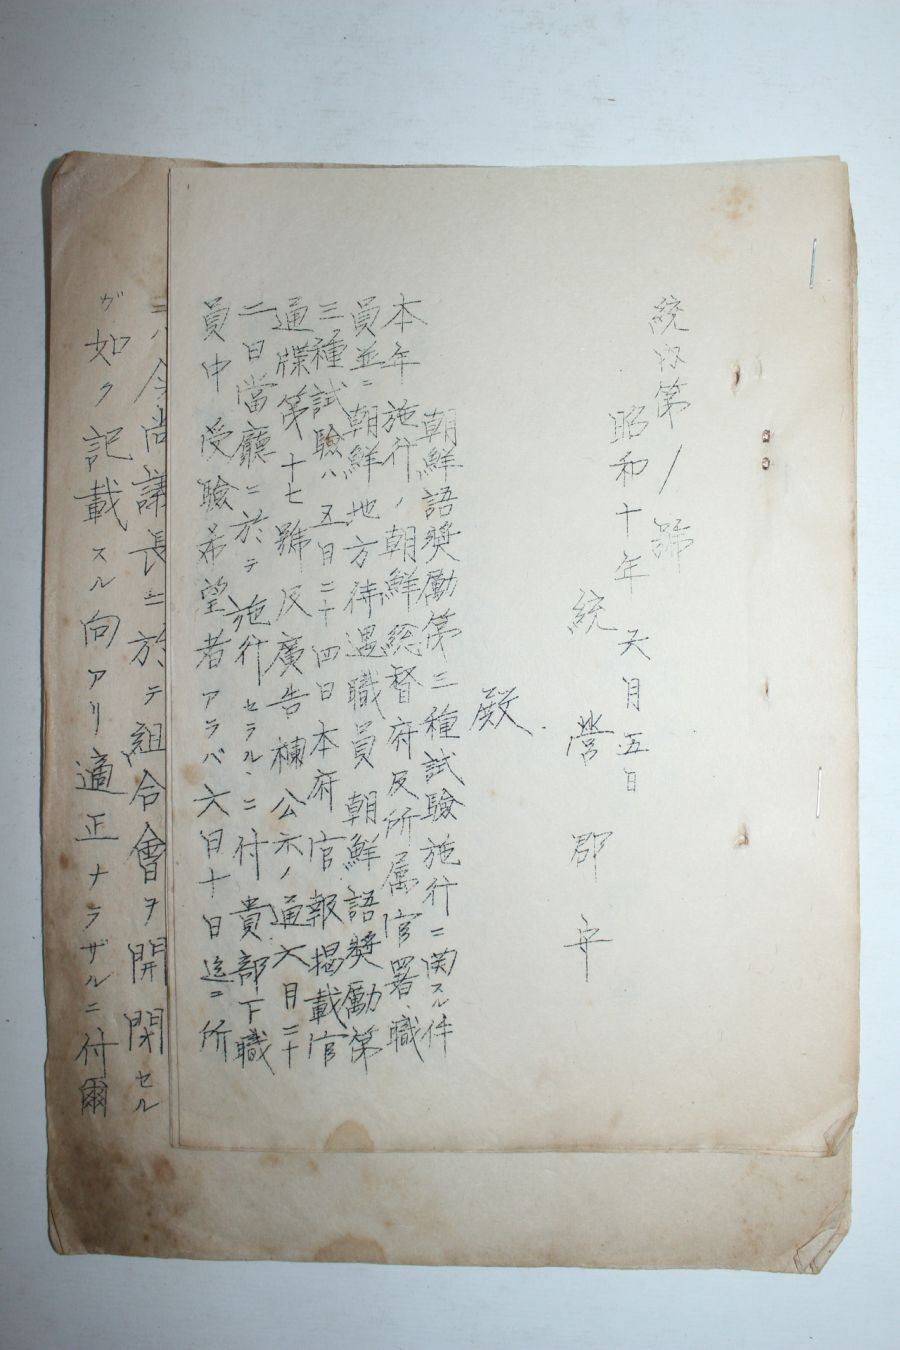 統内第1號
昭和十年六月五日
統營郡守
殿
朝鮮語奬勵第三種試驗施行ニ関スル件
本年施行ノ朝鮮総督府及所属官署ノ職
員並ニ朝鮮地方待遇職員朝鮮語奬勵第
三種試驗ハ五月二十四日本府官報揭載官
通牒第十七號及廣告欄公示ノ通六月二十
二日當廳ニ於テ施行セラルヽニ付貴部下職
員中受驗希望者アラバ六日十日迄ニ所
ニハ今尚議長ニ於テ組合會ヲ開閉セル
ガ如ク記載スル向アリ適正ナラザルニ付爾